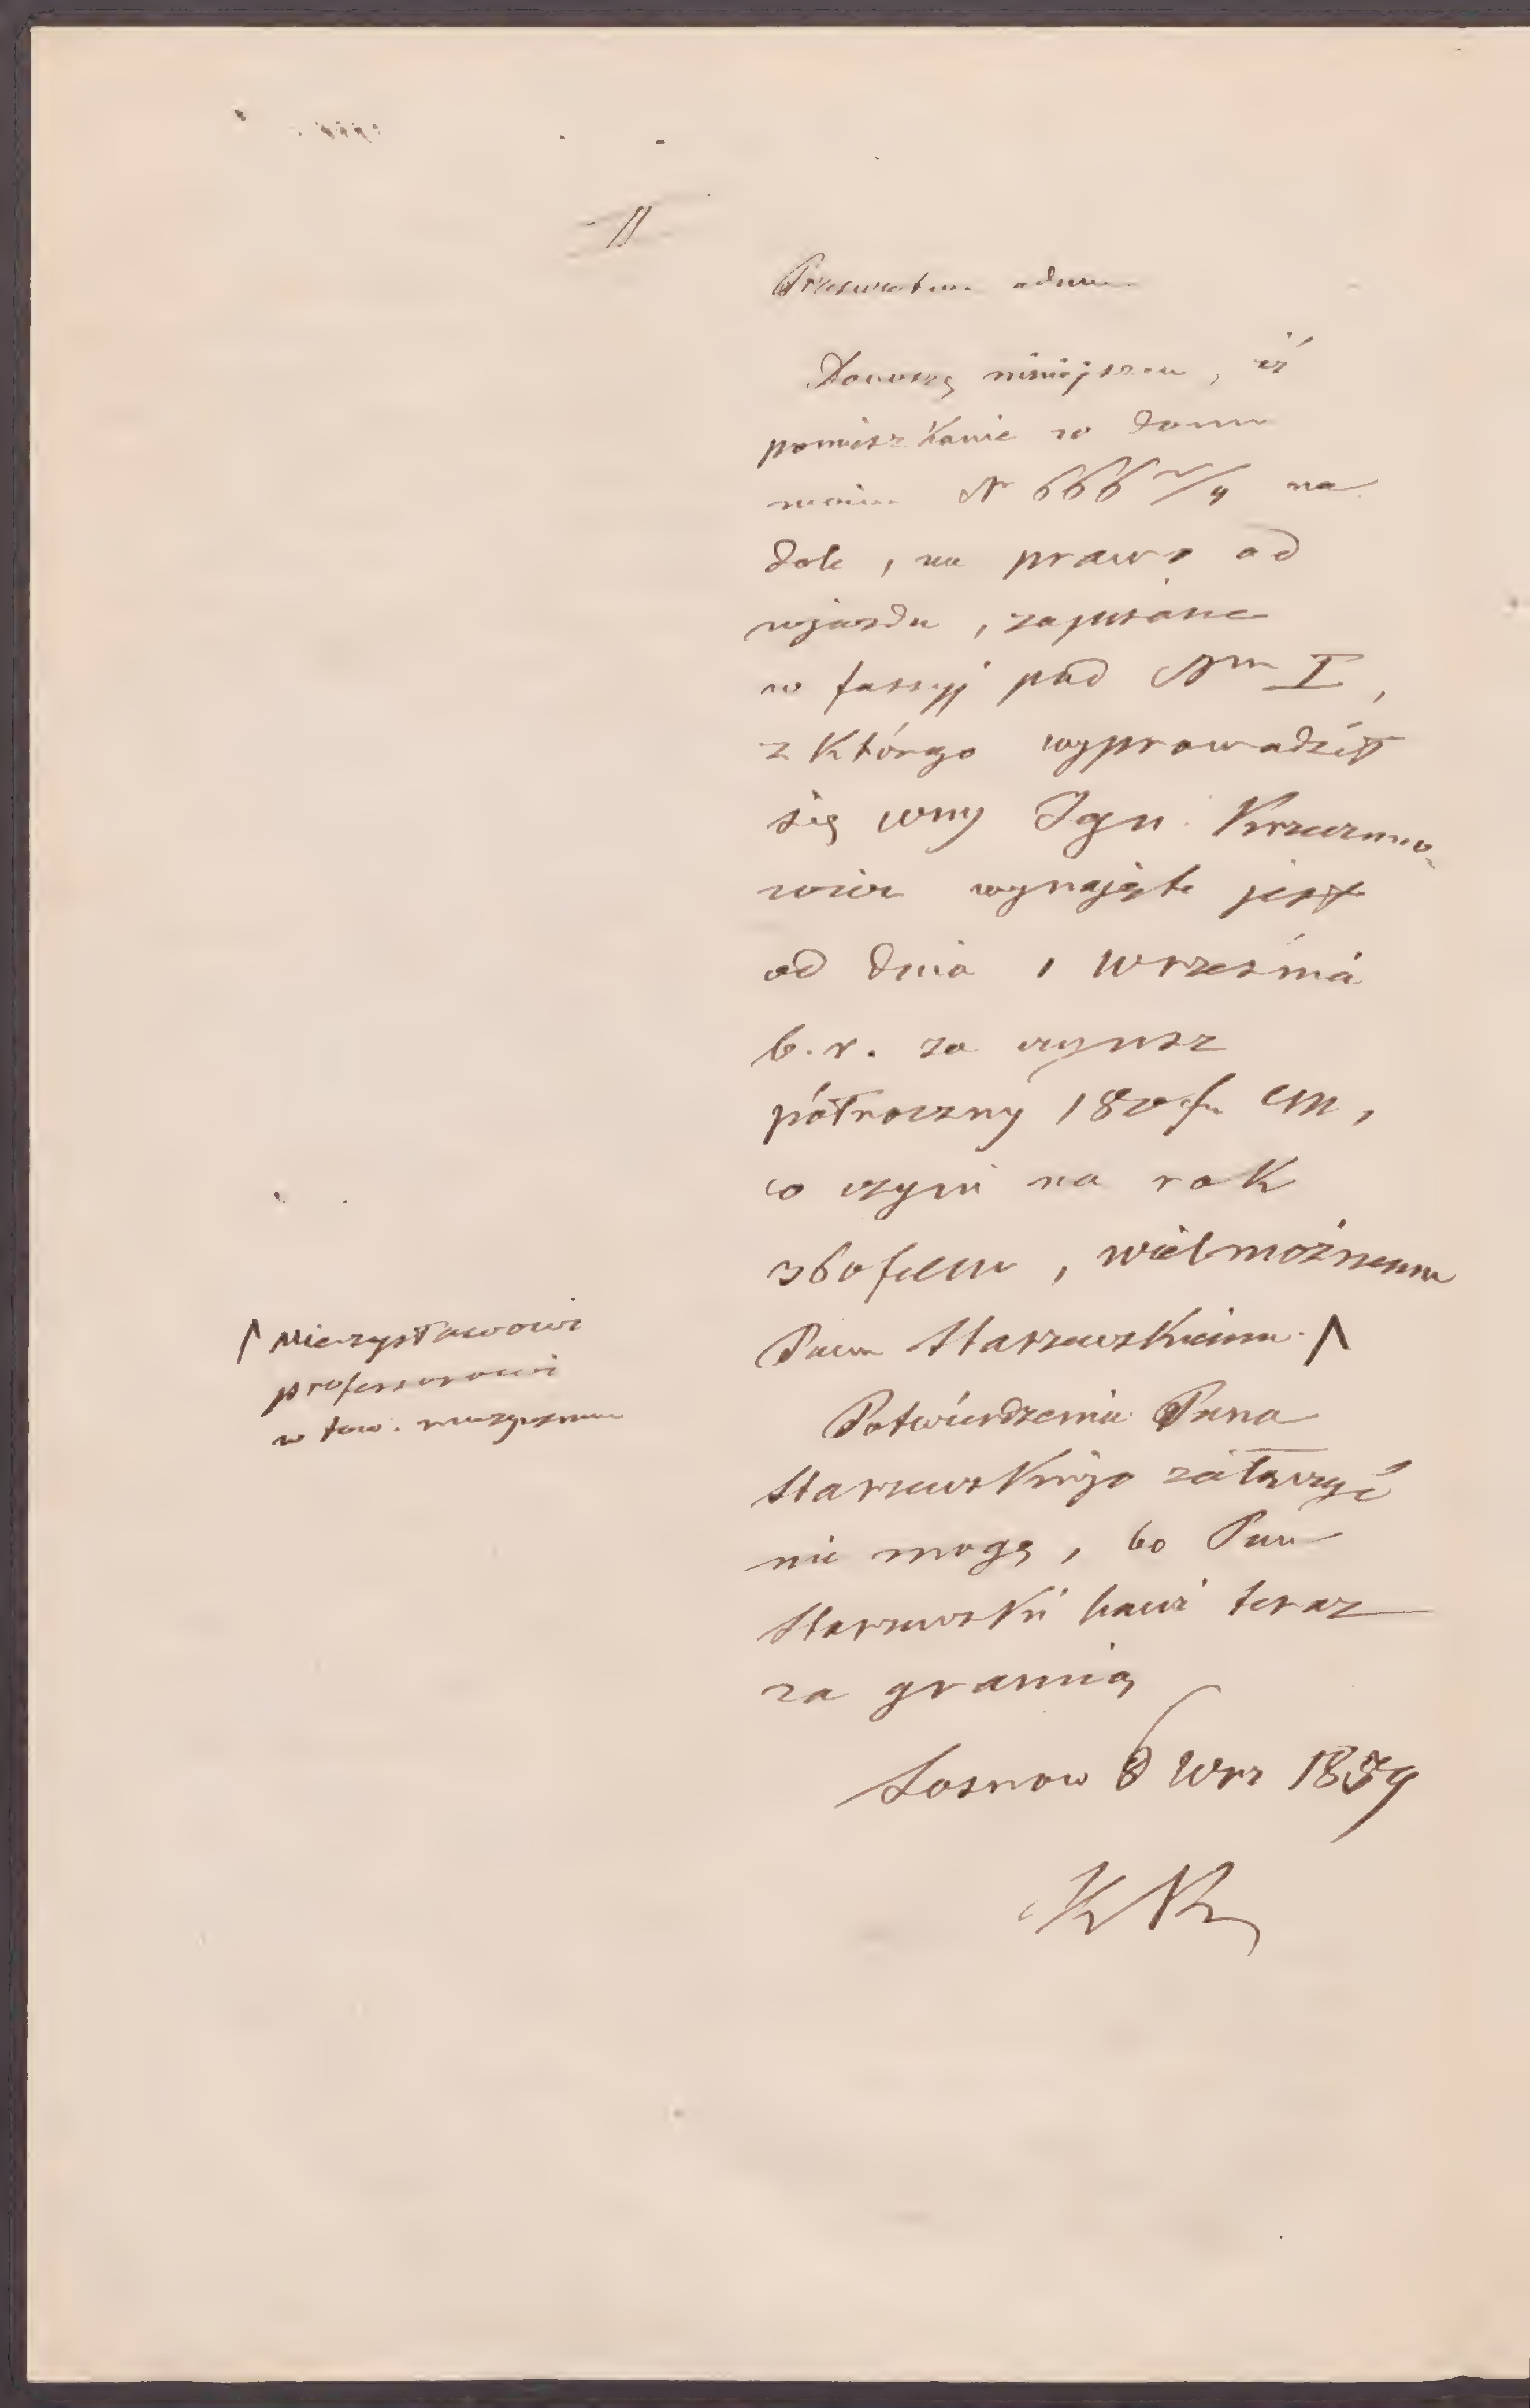 Donoszę niniejszem, iż
pomieszkanie w domu
moim N 666 2/4 na
dole, na prawo od
wjazdu, zapisane
w fassyj pod Nrm I,
z którego wyprowadził
się wny Ign. Krzeczuno-
wicz wynajęte jest
od dnia 1 września
b. r. za czynsz
półroczny 180 fr CM,
co czyni na rok
360 fr CM, wielmożnemu
Panu Starzewskiemu. /\
/\ Mieczysławowi
professorowi
w tow. muzycznem
Potwierdzenia Pana
Starzewskiego załączyć
nie mogę, bo Pan
Starzewski bawi teraz
za granicą
Losnow 8 Wrz 1859